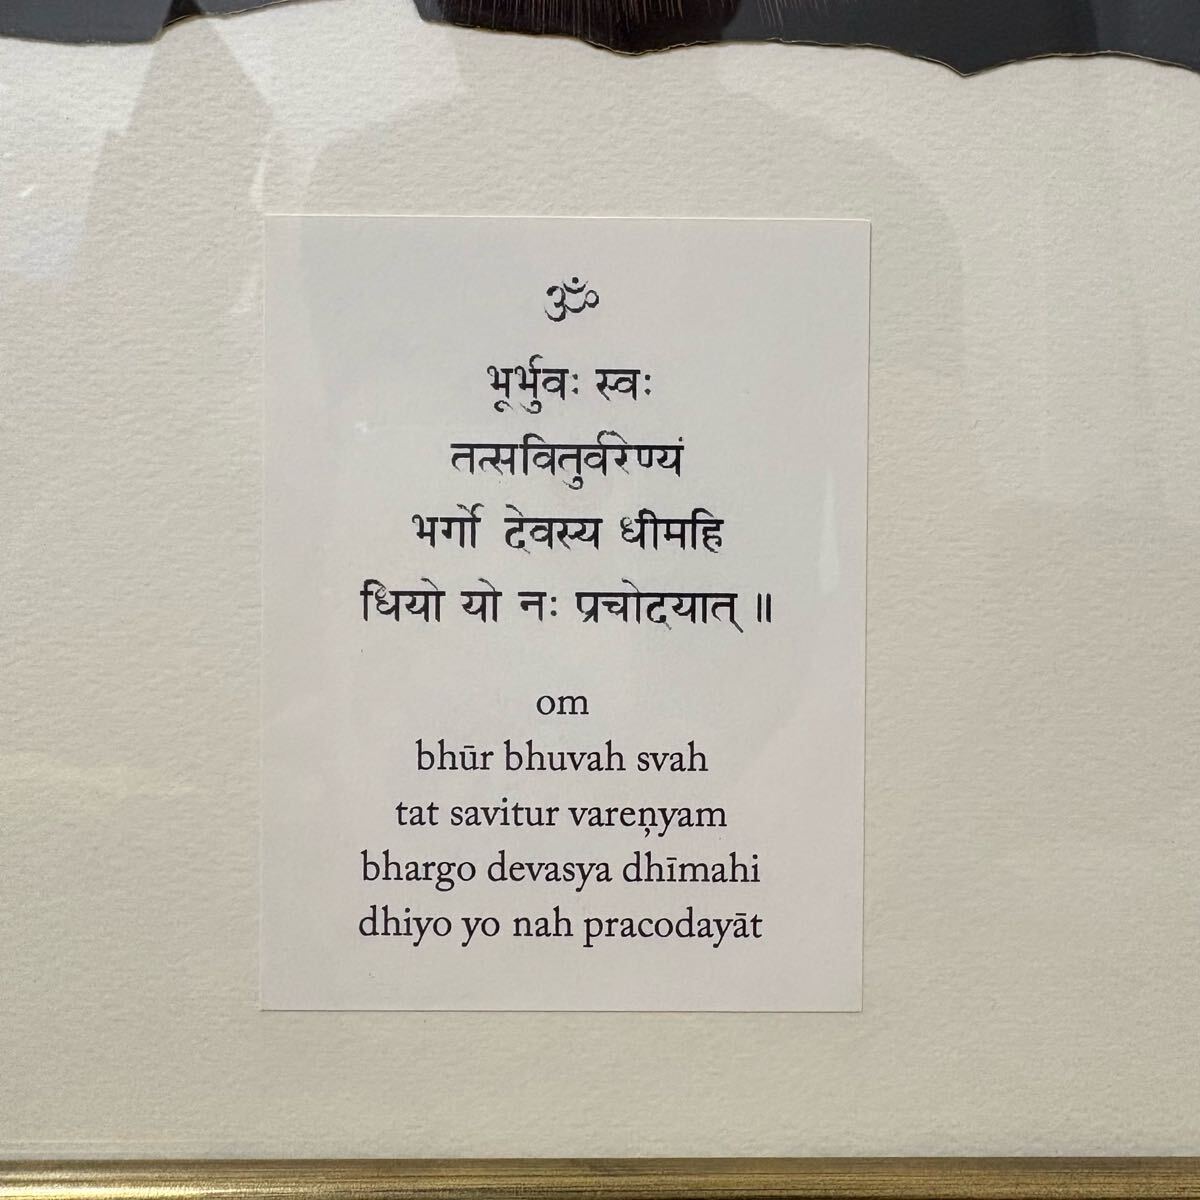 ॐ
भूर्भुवः स्वः
तत्सवितुर्वरेण्यं
भर्गो देवस्य धीमहि
धियो यो नः प्रचोदयात् ॥
om
bhūr bhuvah svah
tat savitur vareṇyam
bhargo devasya dhīmahi
dhiyo yo nah pracodayāt